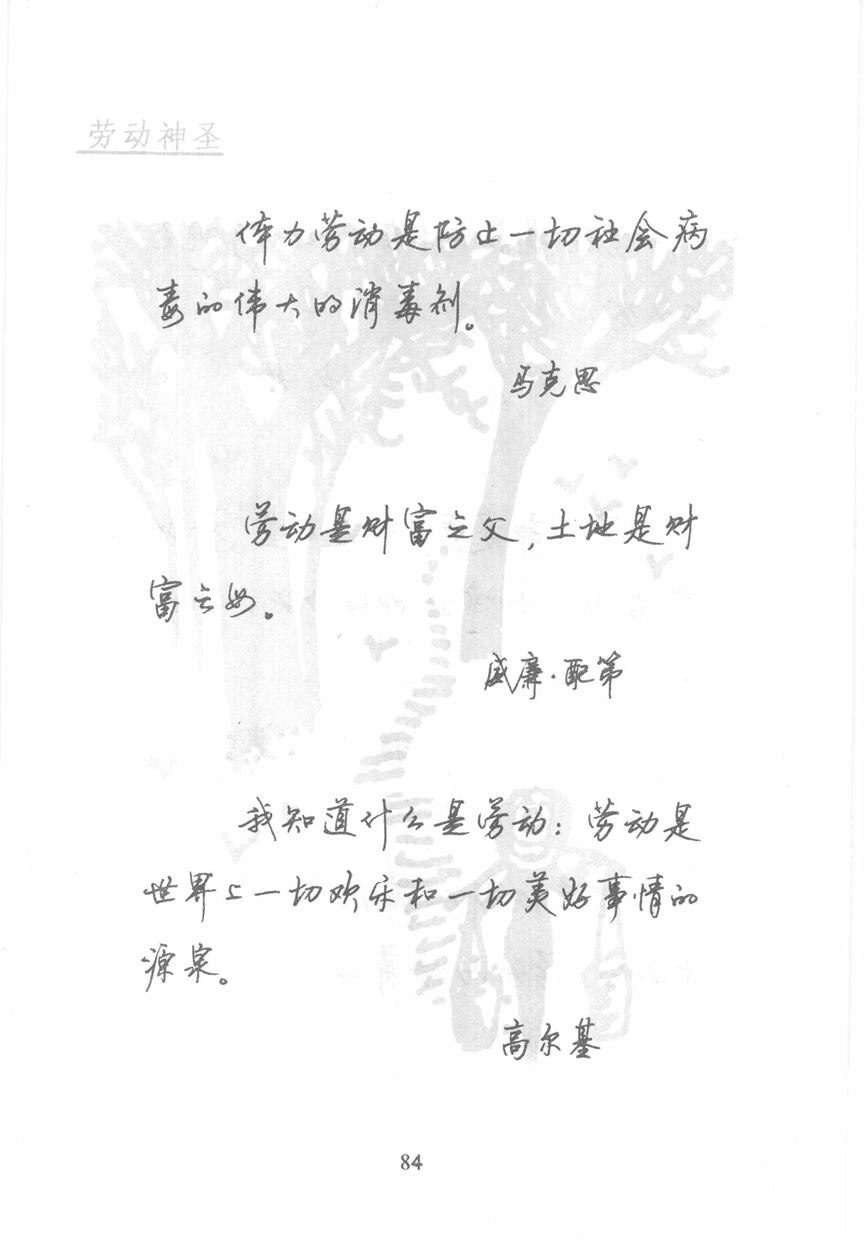 劳动神圣
体力劳动是防止一切社会病
毒的伟大的消毒剂。
马克思
劳动是财富之父，土地是财
富之母。
威廉·配第
我知道什么是劳动：劳动是
世界上一切欢乐和一切美好事情的
源泉。
高尔基
84